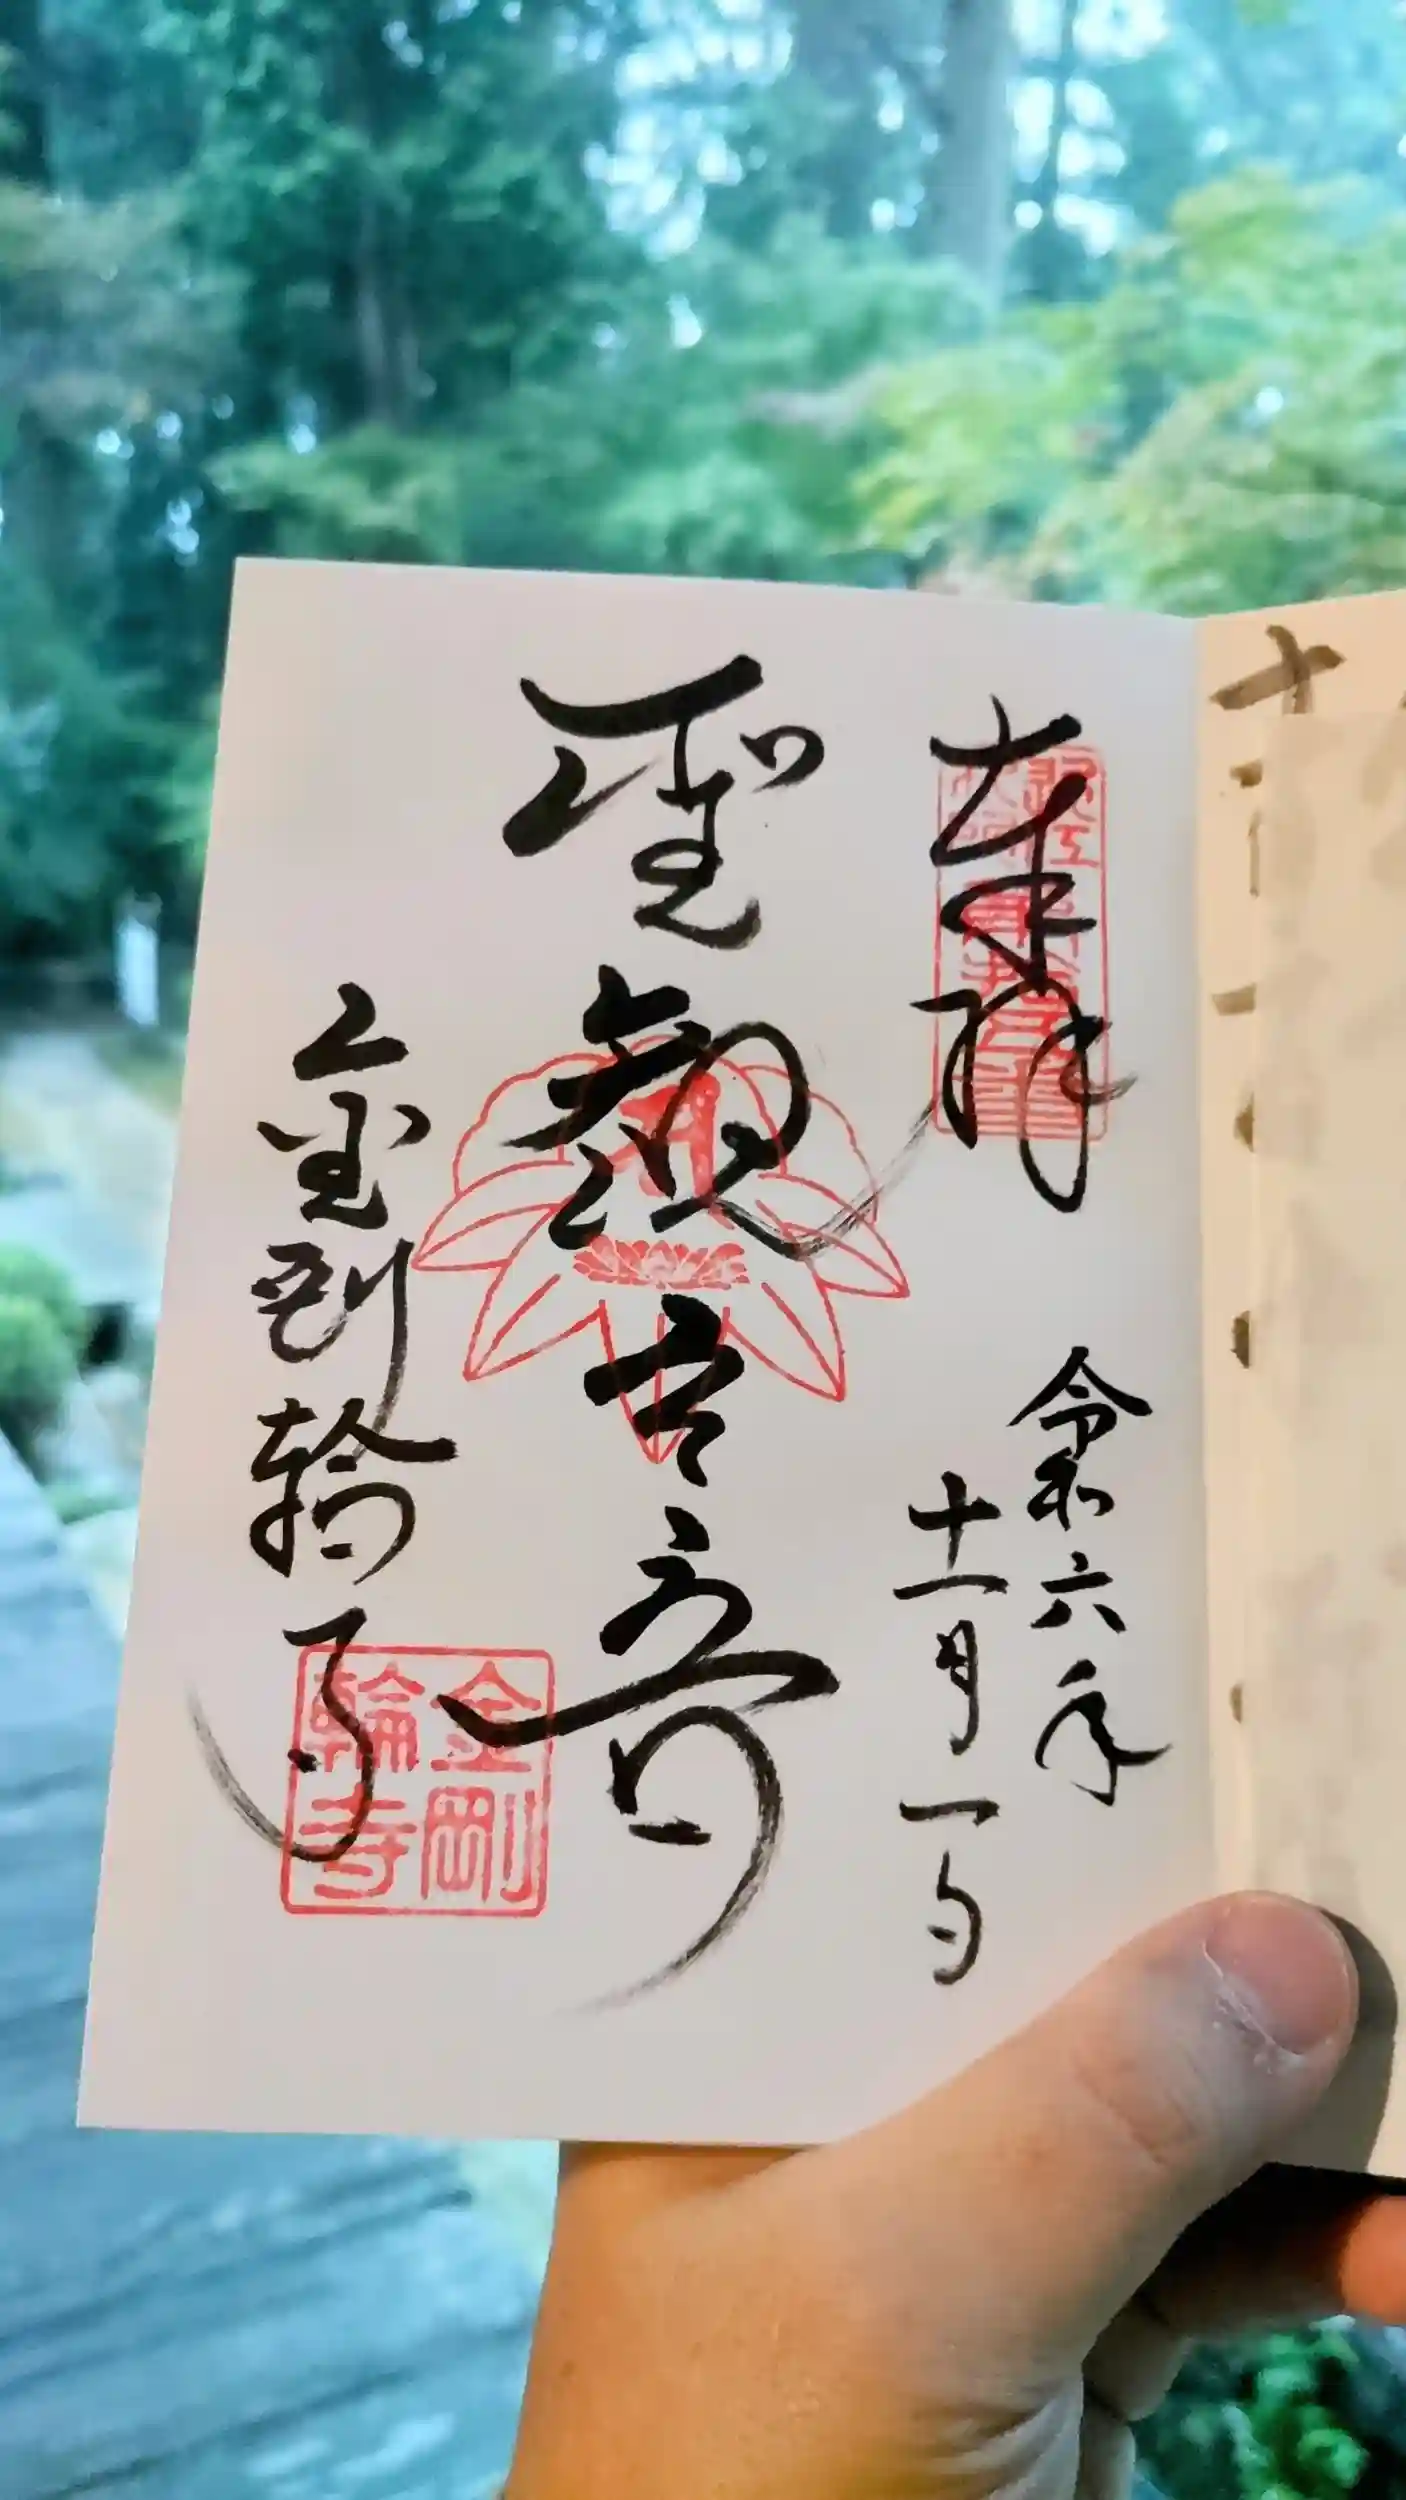 奉拝
令和六年
十一月一日
聖観世音
金剛輪寺
金剛
輪寺
十